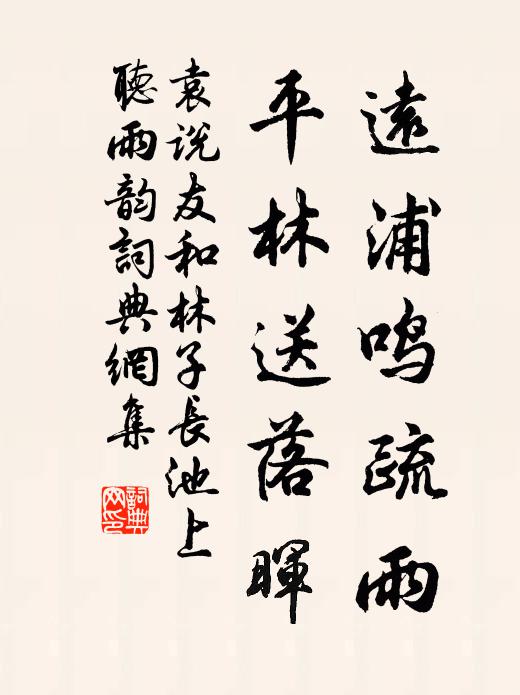 遠浦鸣疏雨
平林送落暉
袁说友和林子長池上
聽雨韵詞典網集
詞典
网印